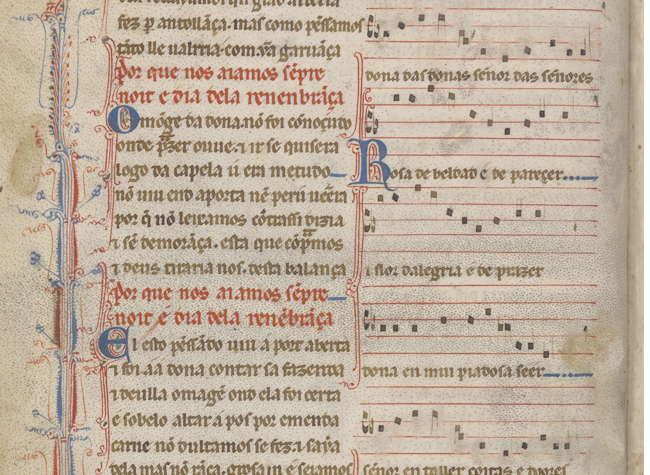 fez p̄ antollāça. mas como pēssamos
tāto lle ualrria. com aȳ garuāça
Por que nos aiamos sēpre
noit e dia dela renenbrāça
Omōge da dona. nō foi conoçuto
onde p̄zer ouue. ⁊ ir se quisera
logo da capela u era metudo
nō uiu end aporta nē per u uēera
por q̄ nō leixamos cōtrassi dizia
⁊ sē demorāça. esta que cōp̄mos
⁊ deus tiraria nos. desta balança
Por que nos aiamos sēpre
noit e dia dela renēbrāça
El esto pēssādo uiu a port aberta
⁊ foi aa dona contar sa fazenda
⁊ deulla omagē ond ela foi certa
e sobelo altar a pos por ementa
carne nō dultamos se fez. ⁊ saỹa
dela mas nō
dona das donas señor das señores
Rosa de beldad e de pareçer
⁊ flor dalegria e de prazer
dona en mui piadosa seer
señor en toller coitas e doores